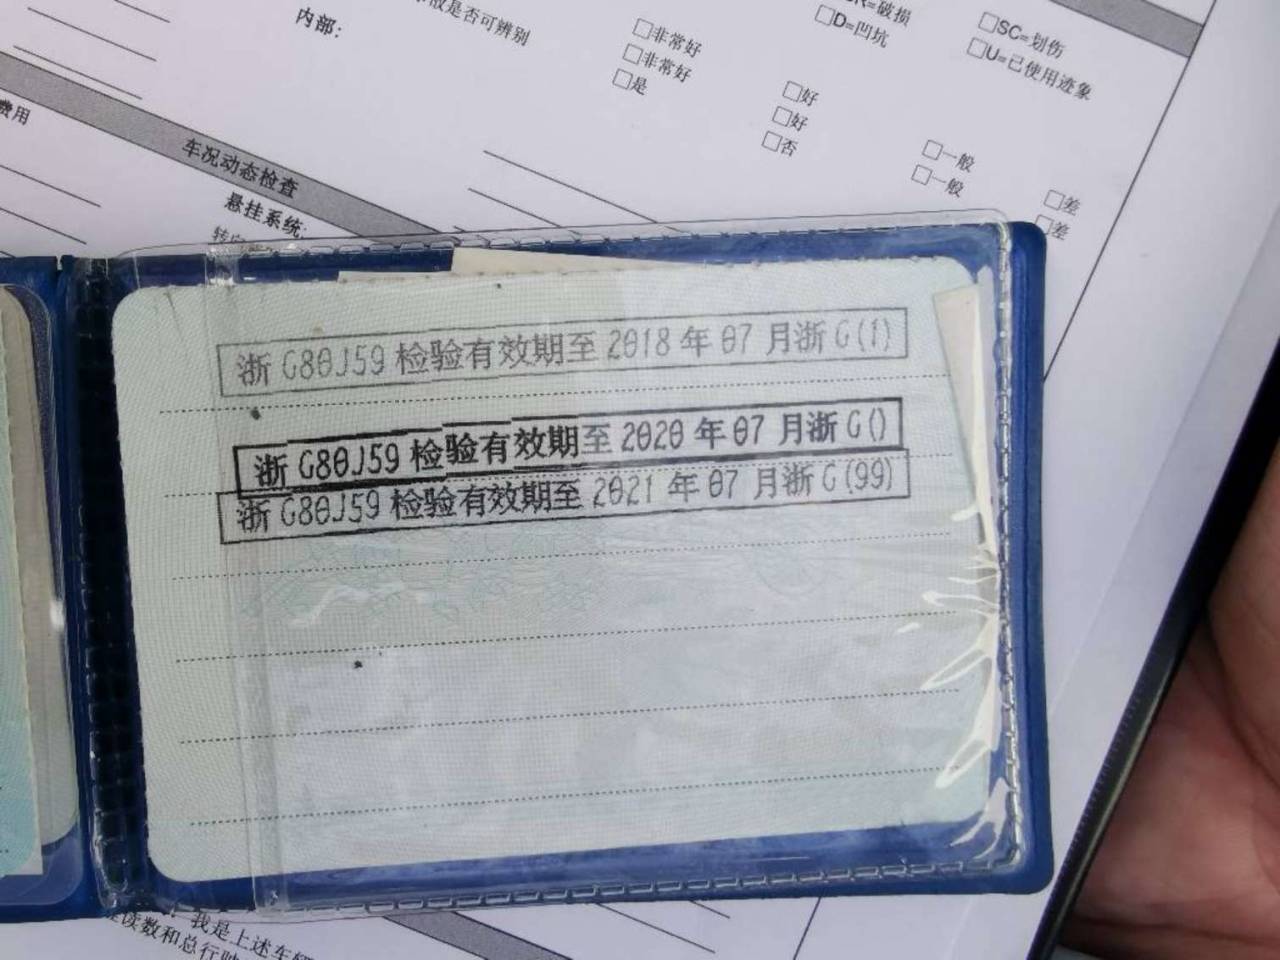 故是否可辨别
内部:
□非常好
□非常好
□是
□好
□好
□否
□一般
□一般
□差
□差
=破损
□D=凹坑
□SC=划伤
□U=已使用迹象
费用
车况动态检查
悬挂系统:
转向
浙 G80J59 检验有效期至 2018 年 07 月浙 G(1)
浙 G80J59 检验有效期至 2020 年 07 月浙 G()
浙 G80J59 检验有效期至 2021 年 07 月浙 G(99)
我是上述车辆
读数和总行驶